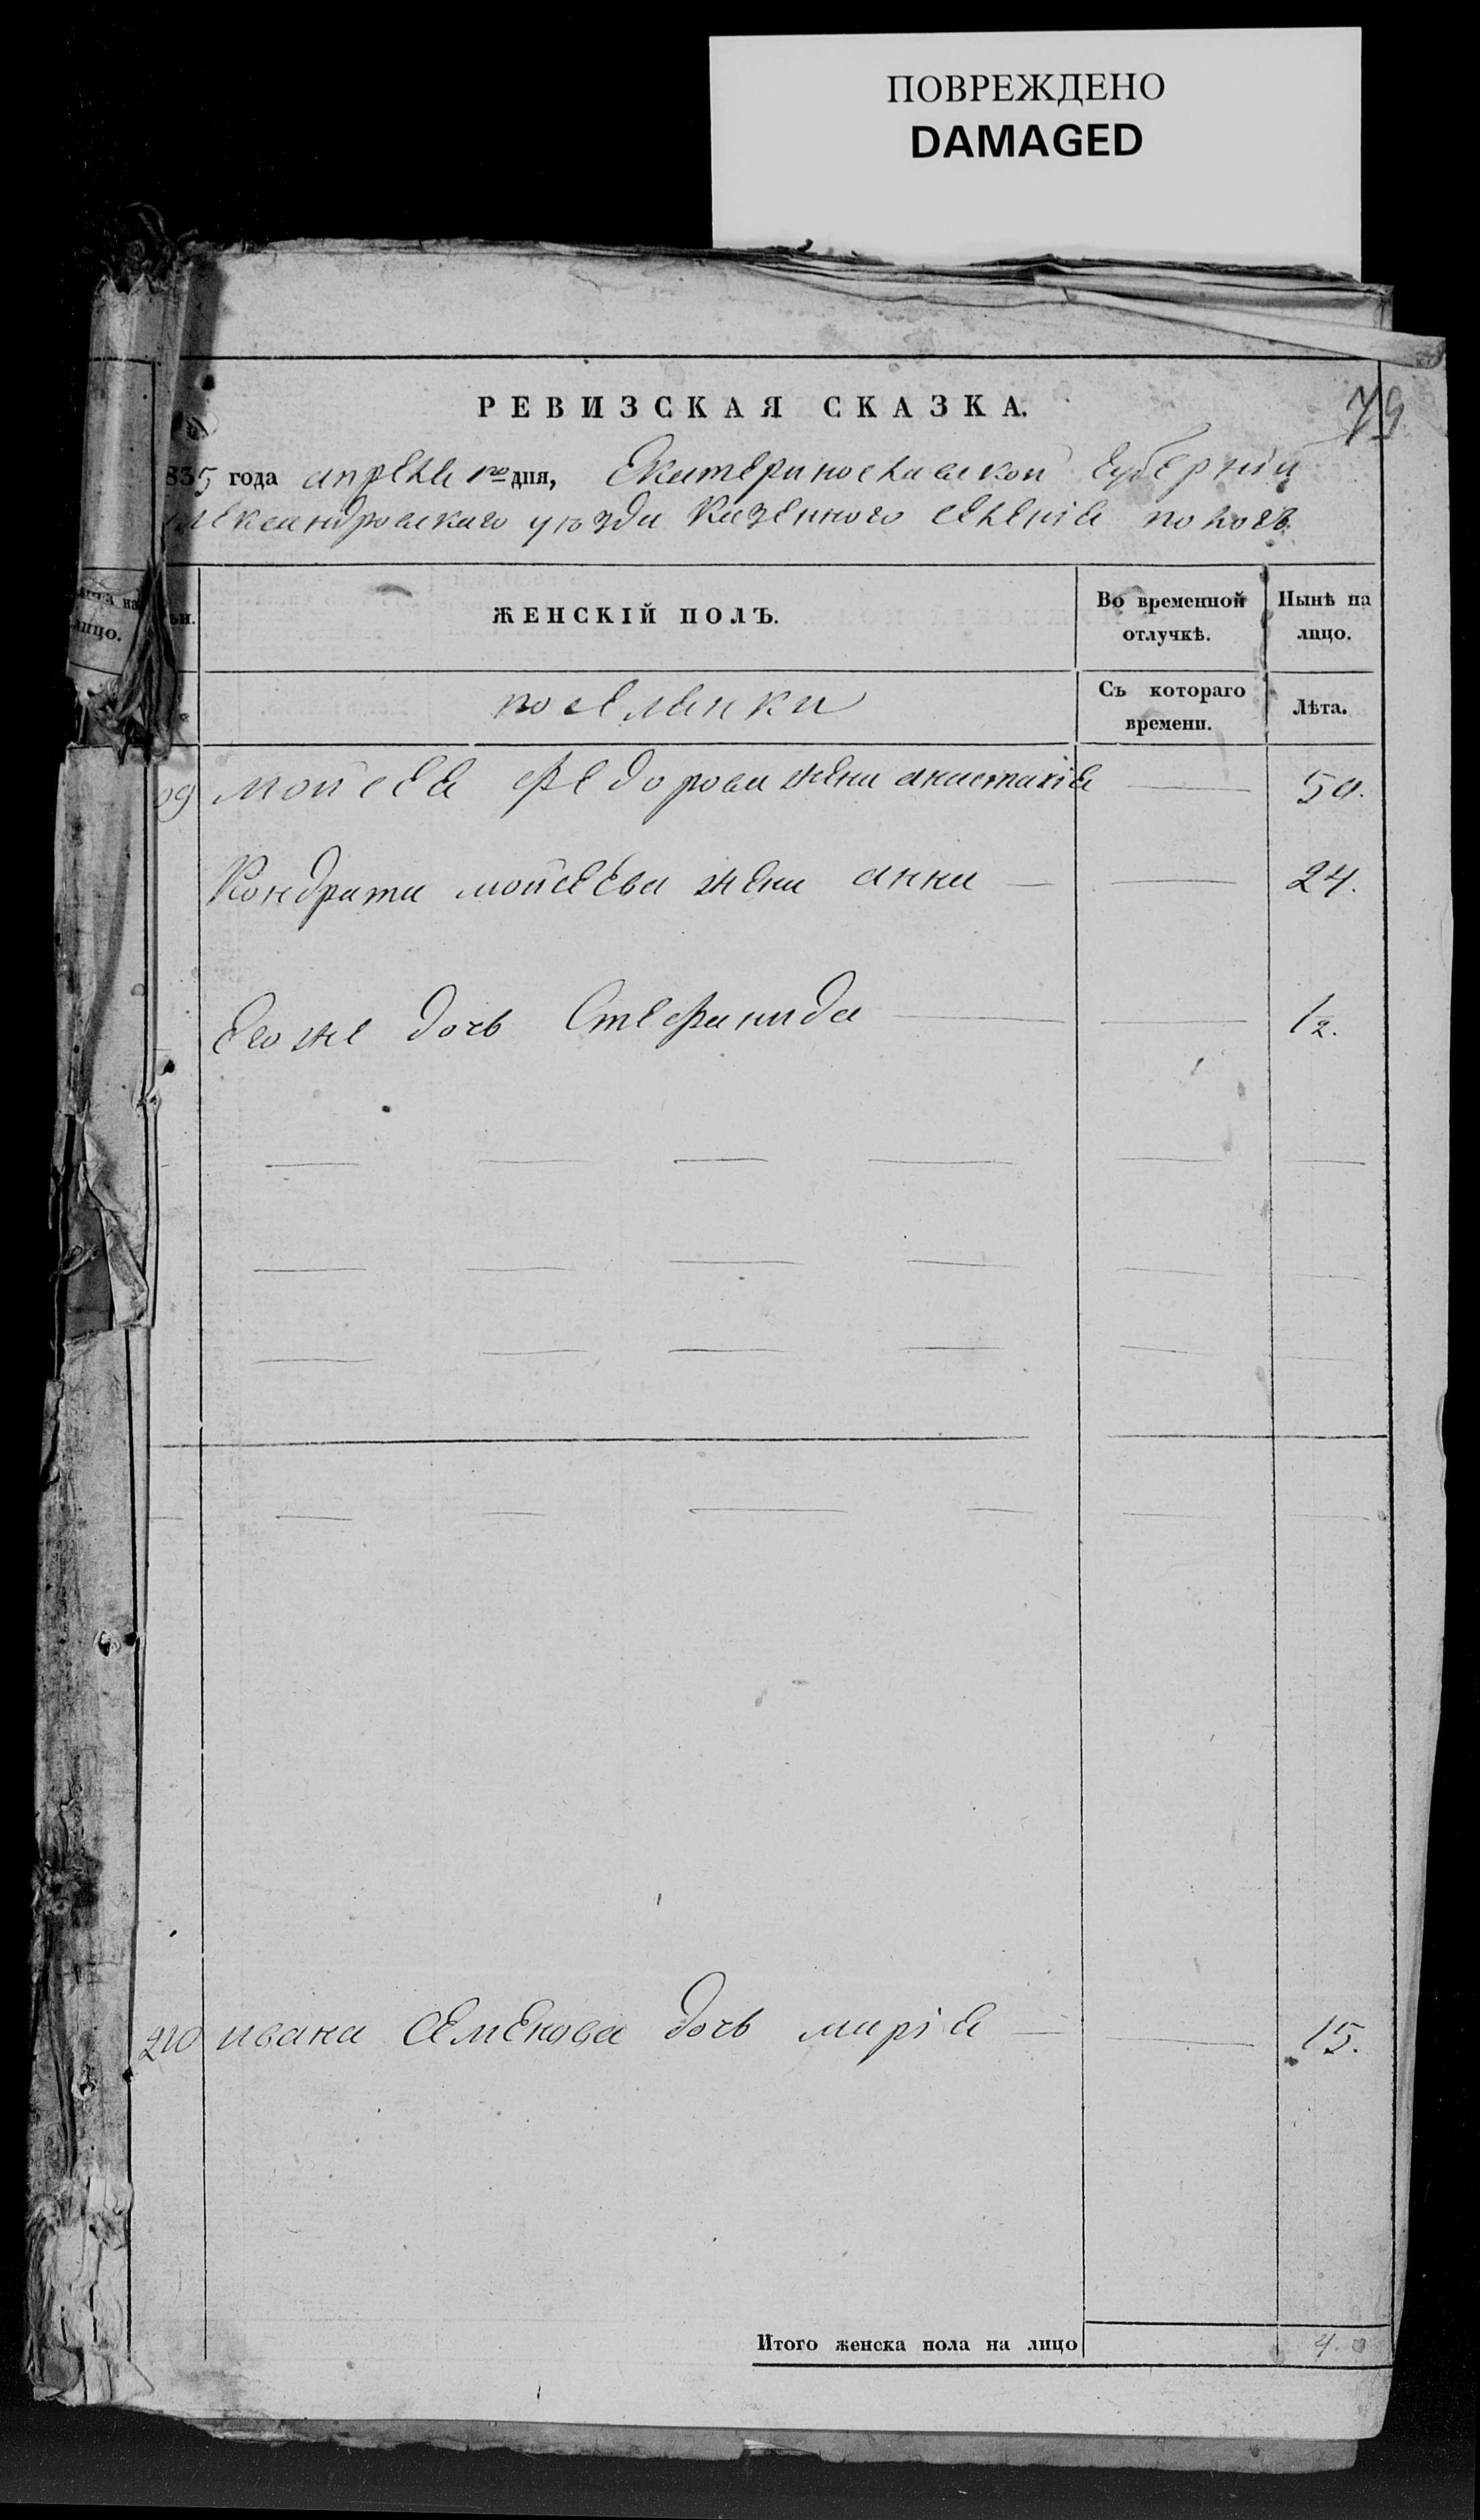 ПОВРЕЖДЕНО
DAMAGED
79
РЕВИЗСКАЯ СКАЗКА.
835 года апреля 1го дня, Екатеринославской губернии
лександровского уезда Казенного селения пологъ
на
лицо.
ЖЕНСКІЙ ПОЛЪ.
Во временной отлучкѣ.
Нынѣ на лицо.
поселянки
Съ котораго времени.
Лѣта.
09 мойсея федорова жена анастасія — 50.
Кондрата мойсеева жена анна — — 24.
Его же дочь Стефанида — — 1/2.
210 ивана Семенова дочь марія — — 15.
Итого женска пола на лицо 4.